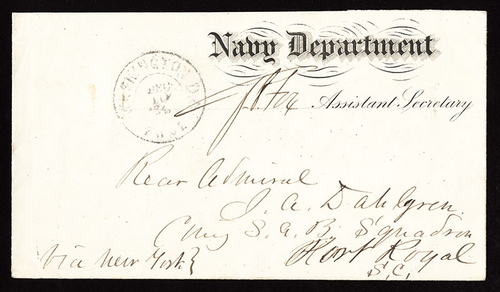 Navy Department
Assistant Secretary
WASHINGTON D.C.
DEC
FREE
Rear Admiral
J. A. Dahlgren
Comg S. A. B. Squadron
Port Royal
S.C.
Via New York